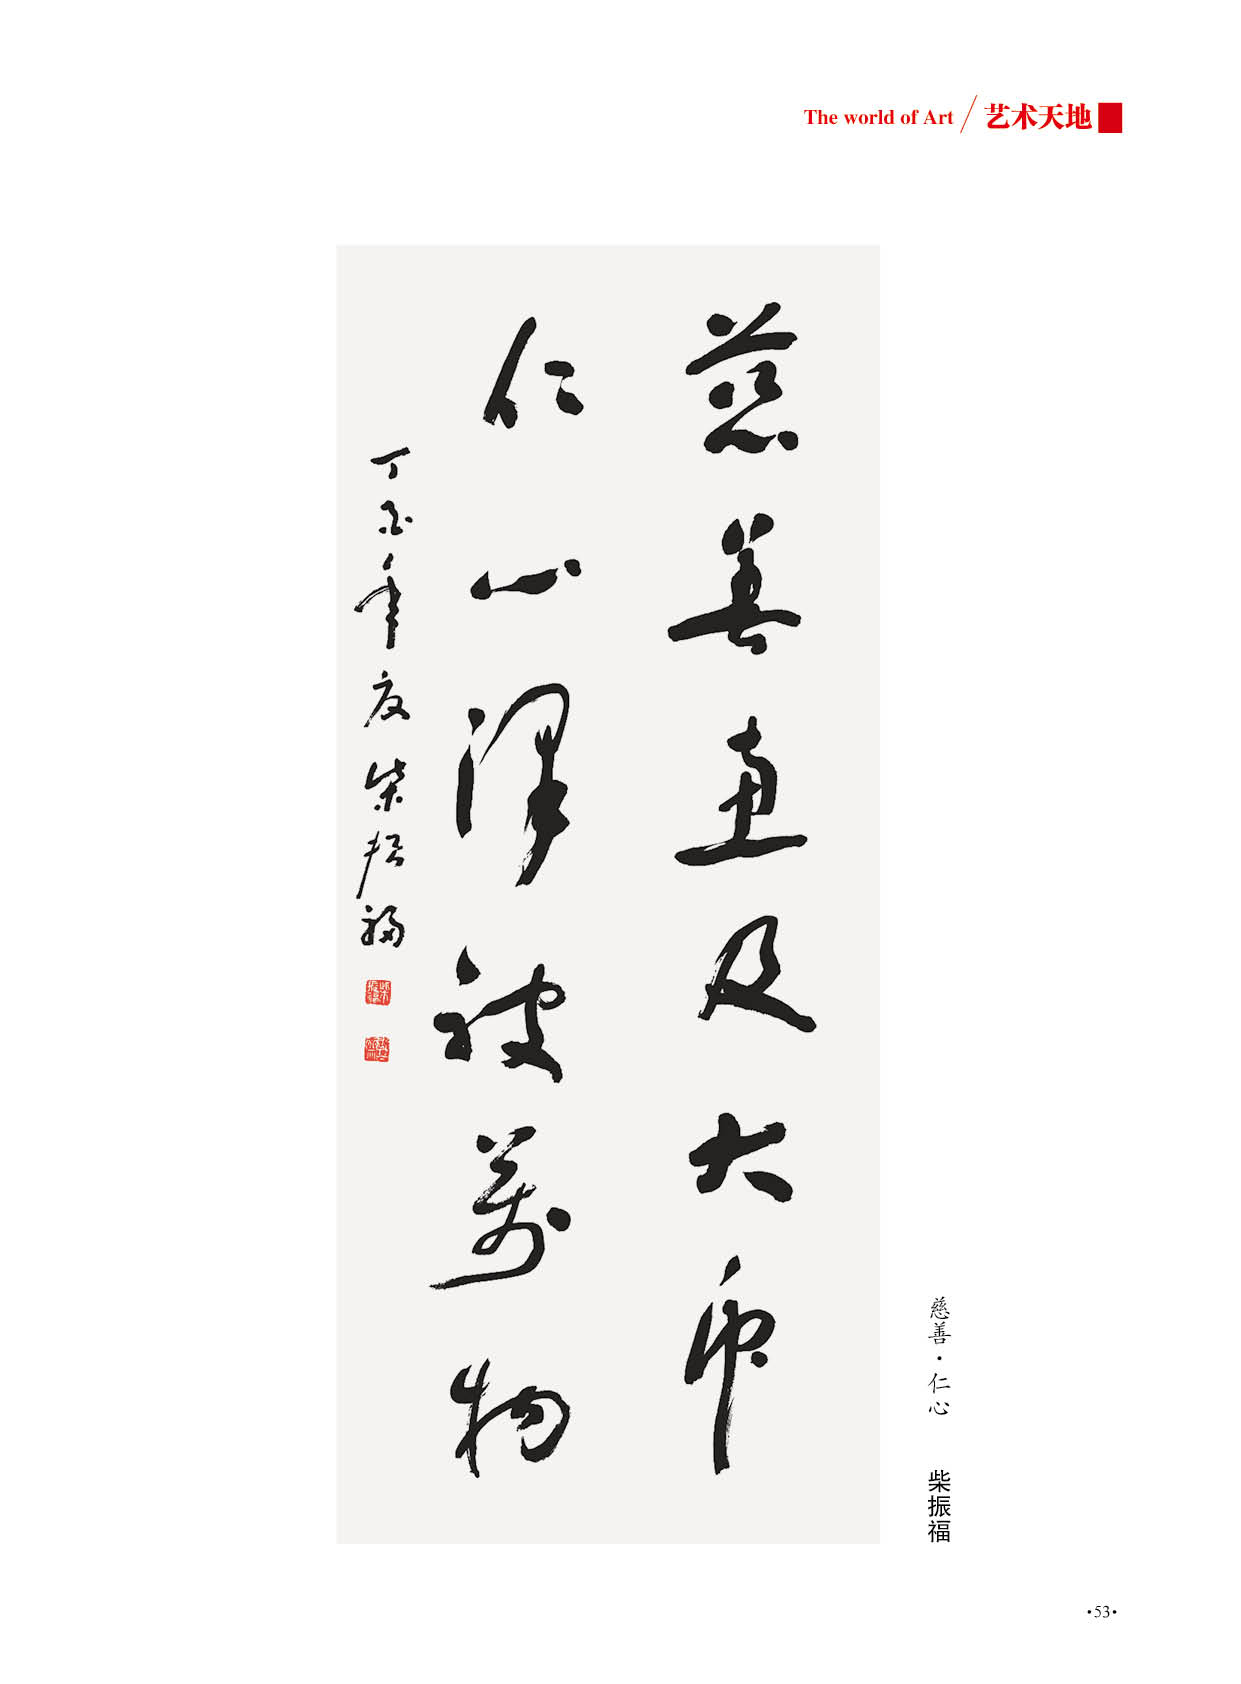 The world of Art / 艺术天地
慈善惠及大衆
仁心澤被萬物
丁酉年夏柴振福
柴振福
慈善·仁心 柴振福
·53·